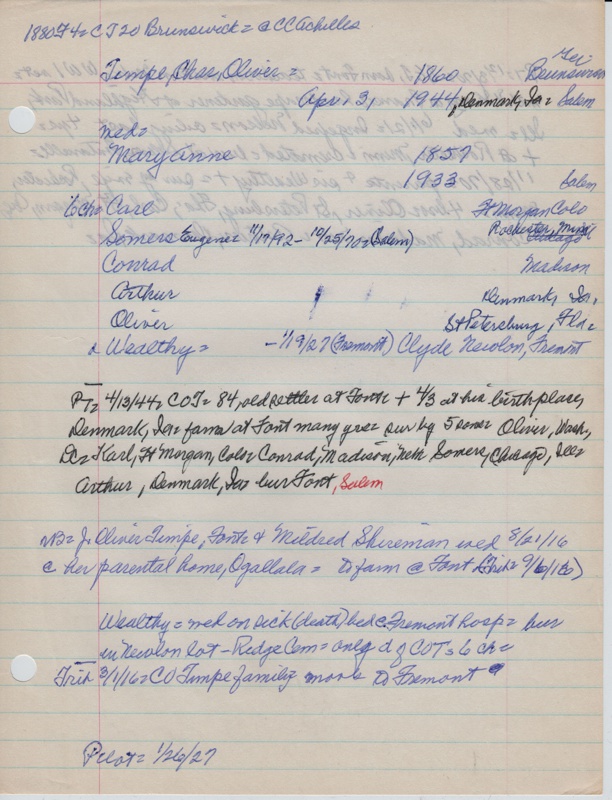 1880 F4= CT 20 Brunswick = @ CC Achilles
Ger
Timpe, Chas, Oliver = 1860 Brunswick
Apr. 3, 1944, Denmark, Ia = Salem
wed=
Mary Anne 1857
1933 Salem
6 ch= Carl Ft Morgan Colo
Somers Eugene = 11/17/92 - 10/25/70 = (Salem) Rochester, Minn Chicago
Conrad Madison
Arthur Denmark, Ia,
Oliver St Petersburg, Fla =
& Wealthy = - 1/19/27 (Fremont) Clyde Newlon, Fremont
FT= 4/13/44 = COT = 84, old settler at Font = + 4/3 at his birthplace,
Denmark, Ia = farm at Font many yrs = sur by 5 sons = Oliver, Wash,
DC = Karl, Ft Morgan, Colo = Conrad, Madison, Neb = Somers, Chicago, Ill =
Arthur, Denmark, Ia = bur Font, Salem
NB = J. Oliver Timpe, Font = & Mildred Shireman wed 8/21/16
@ her parental home, Ogallala = to farm @ Font (Trib = 9/6/16)
Wealthy = wed on sick (death) bed @ Fremont Hosp = bur
in Newlon lot - Ridge Cem = only d of COT = 6 ch =
Trib 3/1/16 = CO Timpe family = move to Fremont
Pilot = 1/26/27